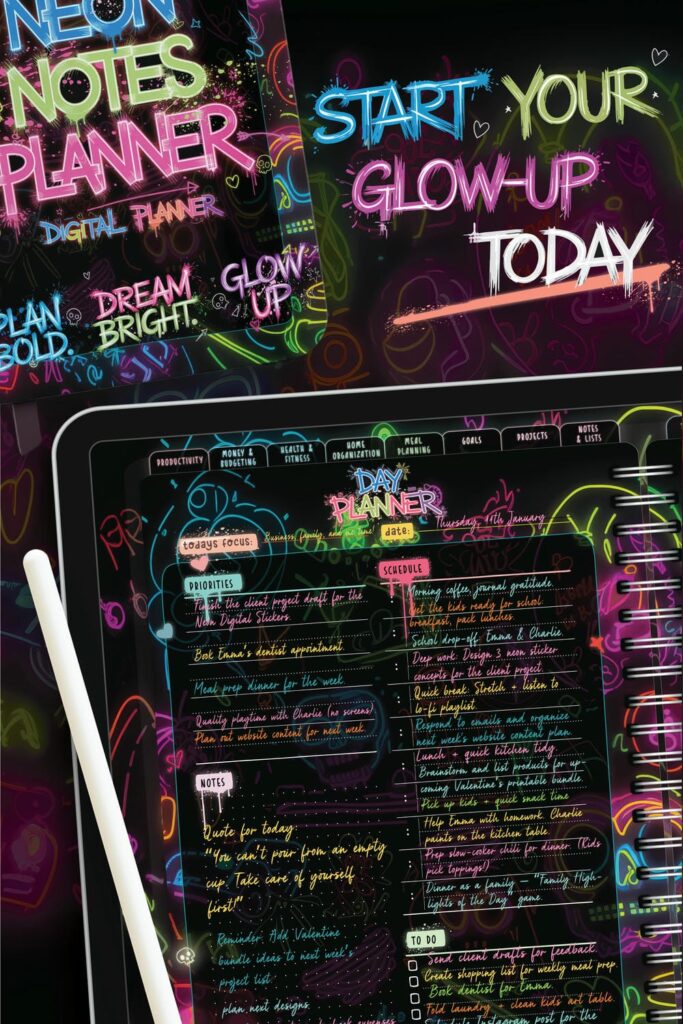 NEON
NOTES
PLANNER
DIGITAL PLANNER
PLAN
BOLD.
DREAM
BRIGHT.
GLOW
UP
START YOUR
GLOW-UP
TODAY
PRODUCTIVITY
MONEY &
BUDGETING
HEALTH &
FITNESS
HOME
ORGANIZATION
MEAL
PLANNING
GOALS
PROJECTS
NOTES
& LISTS
DAY
PLANNER
todays focus:
Business, family, and me time!
date:
Thursday, January
PRIORITIES
Finish the client project draft for the
Neon Digital Stickers.
Book Emma's dentist appointment.
Meal prep dinner for the week.
Quality playtime with Charlie (no screens)
Plan out website content for next week.
NOTES
Quote for today:
"You can't pour from an empty
cup. Take care of yourself
first!"
Reminder: Add Valentine
bundle ideas to next week's
project list.
plan next designs.
expenses
SCHEDULE
Morning coffee, journal gratitude.
Get the kids ready for school
breakfast, pack lunches.
School drop-off: Emma & Charlie.
Deep work: Design 3 neon sticker
concepts for the client project.
Quick break: Stretch + listen to
lo-fi playlist.
Respond to emails and organize
next week's website content plan.
Lunch + quick kitchen tidy.
Brainstorm and list products for up-
coming Valentine's printable bundle.
Pick up kids + quick snack time
Help Emma with homework. Charlie
paints on the kitchen table.
Prep slow-cooker chili for dinner. (Kids
pick toppings!)
Dinner as a family — "Family High-
lights of the Day" game.
TO DO
Send client drafts for feedback.
Create shopping list for weekly meal prep.
Book dentist for Emma.
Fold laundry + clean kids' art table.
Instagram post for the